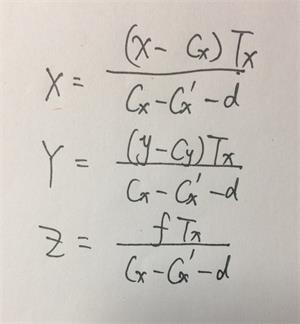 X = (x - Cx) Tx / Cx - Cx' - d
Y = (y - Cy) Tx / Cx - Cx' - d
Z = f Tx / Cx - Cx' - d